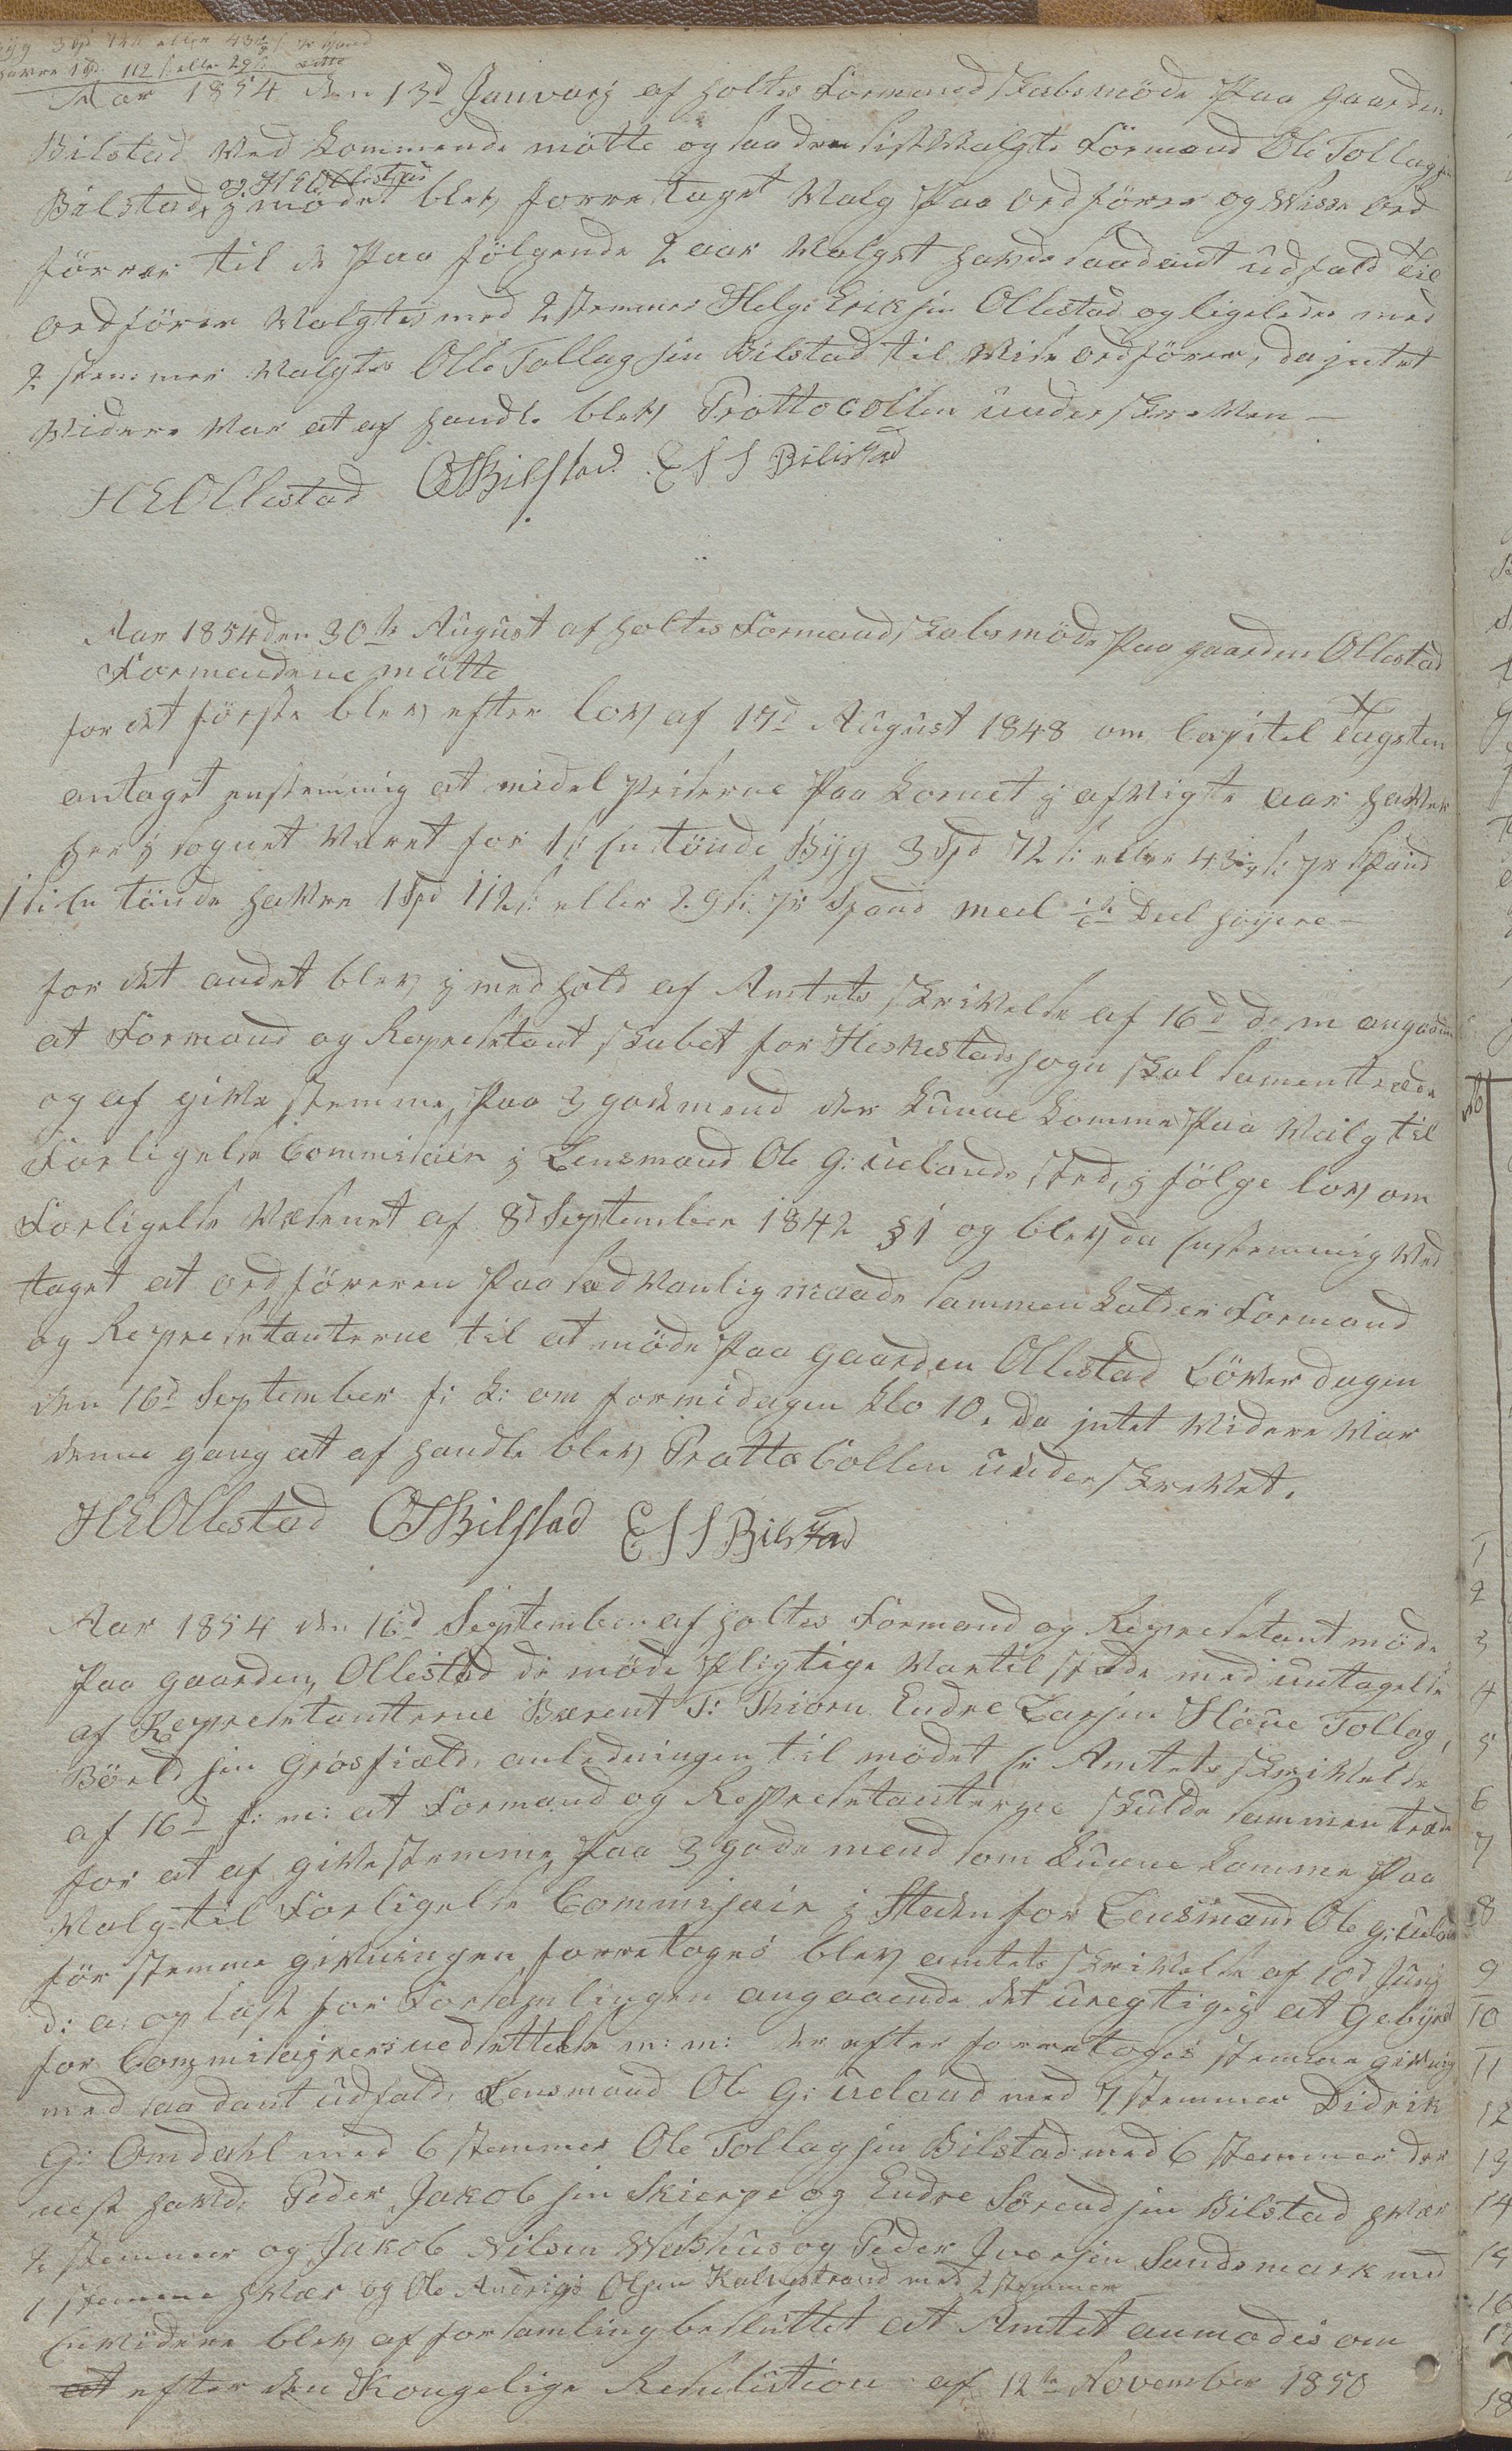 Byg 3 Spd 72 s eller 43 1/2 s pr Spand
havre 1 Spd 112 s eller 29 s ditto
Aar 1854 den 13d Januarj af holtes Formandskabsmöde Paa gaarden
Bilstad Ved kommende mötte og saa den sist Valgte Formand Ole Tollagsen
og H E Ollestad
Bilstad, j mödet blev forretaget Valg Paa ordförer og Vise ord
förrer til de Paa fölgende 2 aar Valget havde saadant udfald til
ordförer Valgtes med 2 stemmer Helge Eriksen Ollestad og ligeledes med
2 stemmer Valgtes Olle Tollagsen Bilstad til Vise ordförer, da jntet
Videre Var at af handle blev Prottocollen underskreven -
H E Ollestad O T Bilstad E S S Bilstad
Aar 1854 den 30te August af holtes Formandskabsmöde Paa gaarden Ollestad
Formendene mötte
for det förste blev efter lov af 17d August 1848 om Capitel Tagsten
antaget enstemmig at midel Priserne Paa Kornet j afvigte aar haver
her j sognet Været for 1 s: en tönde Byg 3 Spd 72 s: eller 43 1/2 s: pr Spand
1 s: en tönde havre 1 Spd 112 s: eller 29 s: pr Spand meel 1/6 Deel höyere -
for det andet blev j med hold af Amtets skrivelse af 16d d: m angaaende
at Formand og Represetantskabet for Heskestads sogn skal samentræde
og af give stemme, Paa 3 gode mend der kunne komme Paa Valg til
Forligelse Commisair j Lensmand Ole G: Uelands sted, j fölge lov om
Forligelse Væsenet af 8d September 1842 § 1 og blev da enstemmig Ved
taget at ordföreren Paa sædvanlig maade sammenkalder Formand
og Represetanterne til at möde Paa gaarden Ollestad Löverdagen
den 16d September f: k: om formidagen klo 10. Da jntet Videre Var
denne gang at af handle blev Prottocollen underskrevet.
H E Ollestad O T Bilstad E S S Bilstad
Aar 1854 den 16d September af holtes Formand og Represetant möde
Paa gaarden, Ollestad de möde Pligtige Var til stæde med untagelse
af Represetanterne Berent T: Thiorn Endre Larsen Höue Tollag,
Börildsen Grösfield, anledningen til mödet er Amtets skrivelse
af 16d f: m: at Formand og Represetanterne skulde sammentræde
for at af give stemme, Paa 3 gode mend som kunne komme Paa
Valg til Forligelse Commisair j Steden for Lensmand Ole G: Ueland
för stemme givningen forretoges blev amtets skrivelse af 10d Junj
d: a: oplæst for Forsamlingen angaaende det uregtige j at Gebyret
for Commisairers nedsettelse m: m: der efter forretoges stemme givning
med saadant udfald, Lensmand Ole G: Ueland med 7 stemmer Didrik
G: Omdahl med 6 stemmer, Ole Tollagsen Bilstad med 6 stemmer der
nest havde Peder Jakobsen Skierpe og Endre Sörensen Bilstad hver
2 stemmer og Jakob Nilsen Washus og Peder Iversen Sandsmark med
1 stemme hver og Ole Andrias Olsen Kalvestrand med 2 stemmer
En Videre blev af forsamling besluttet at Amtet anmodes om
at efter den Kongelige Resolution af 12te November 1850
No
1
2
3
4
5
6
7
8
9
10
11
12
13
14
15
16
17
18